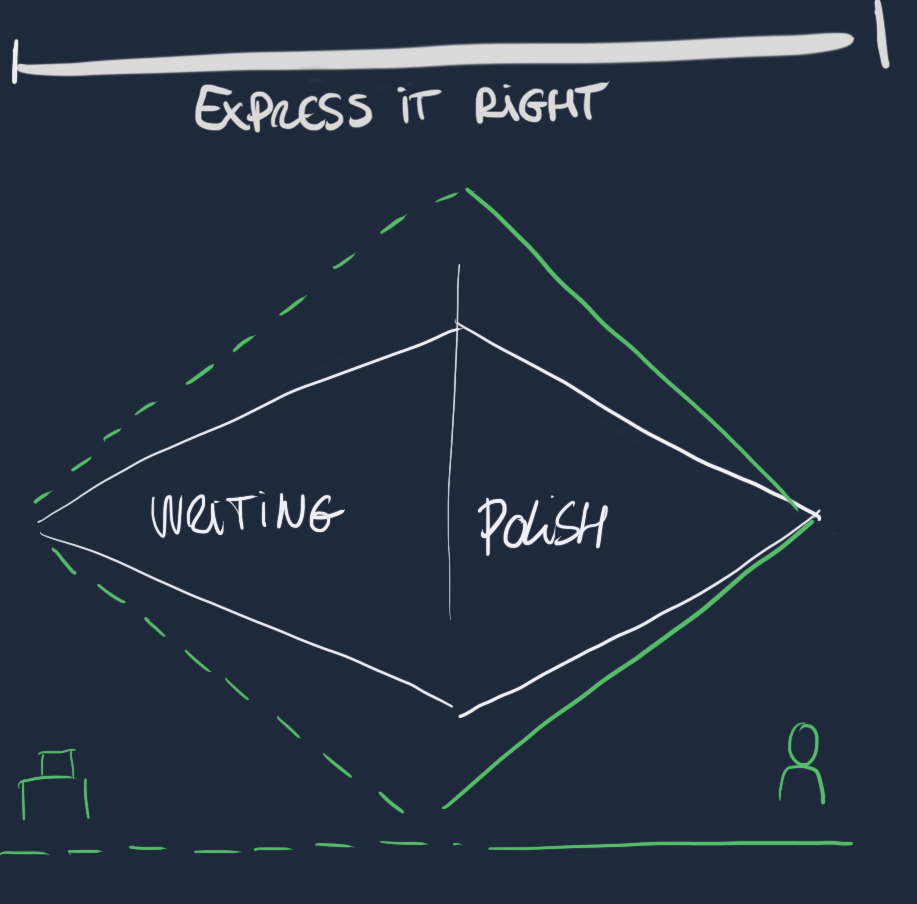 EXPRESS iT RiGHT
WRiTiNG
POLiSH